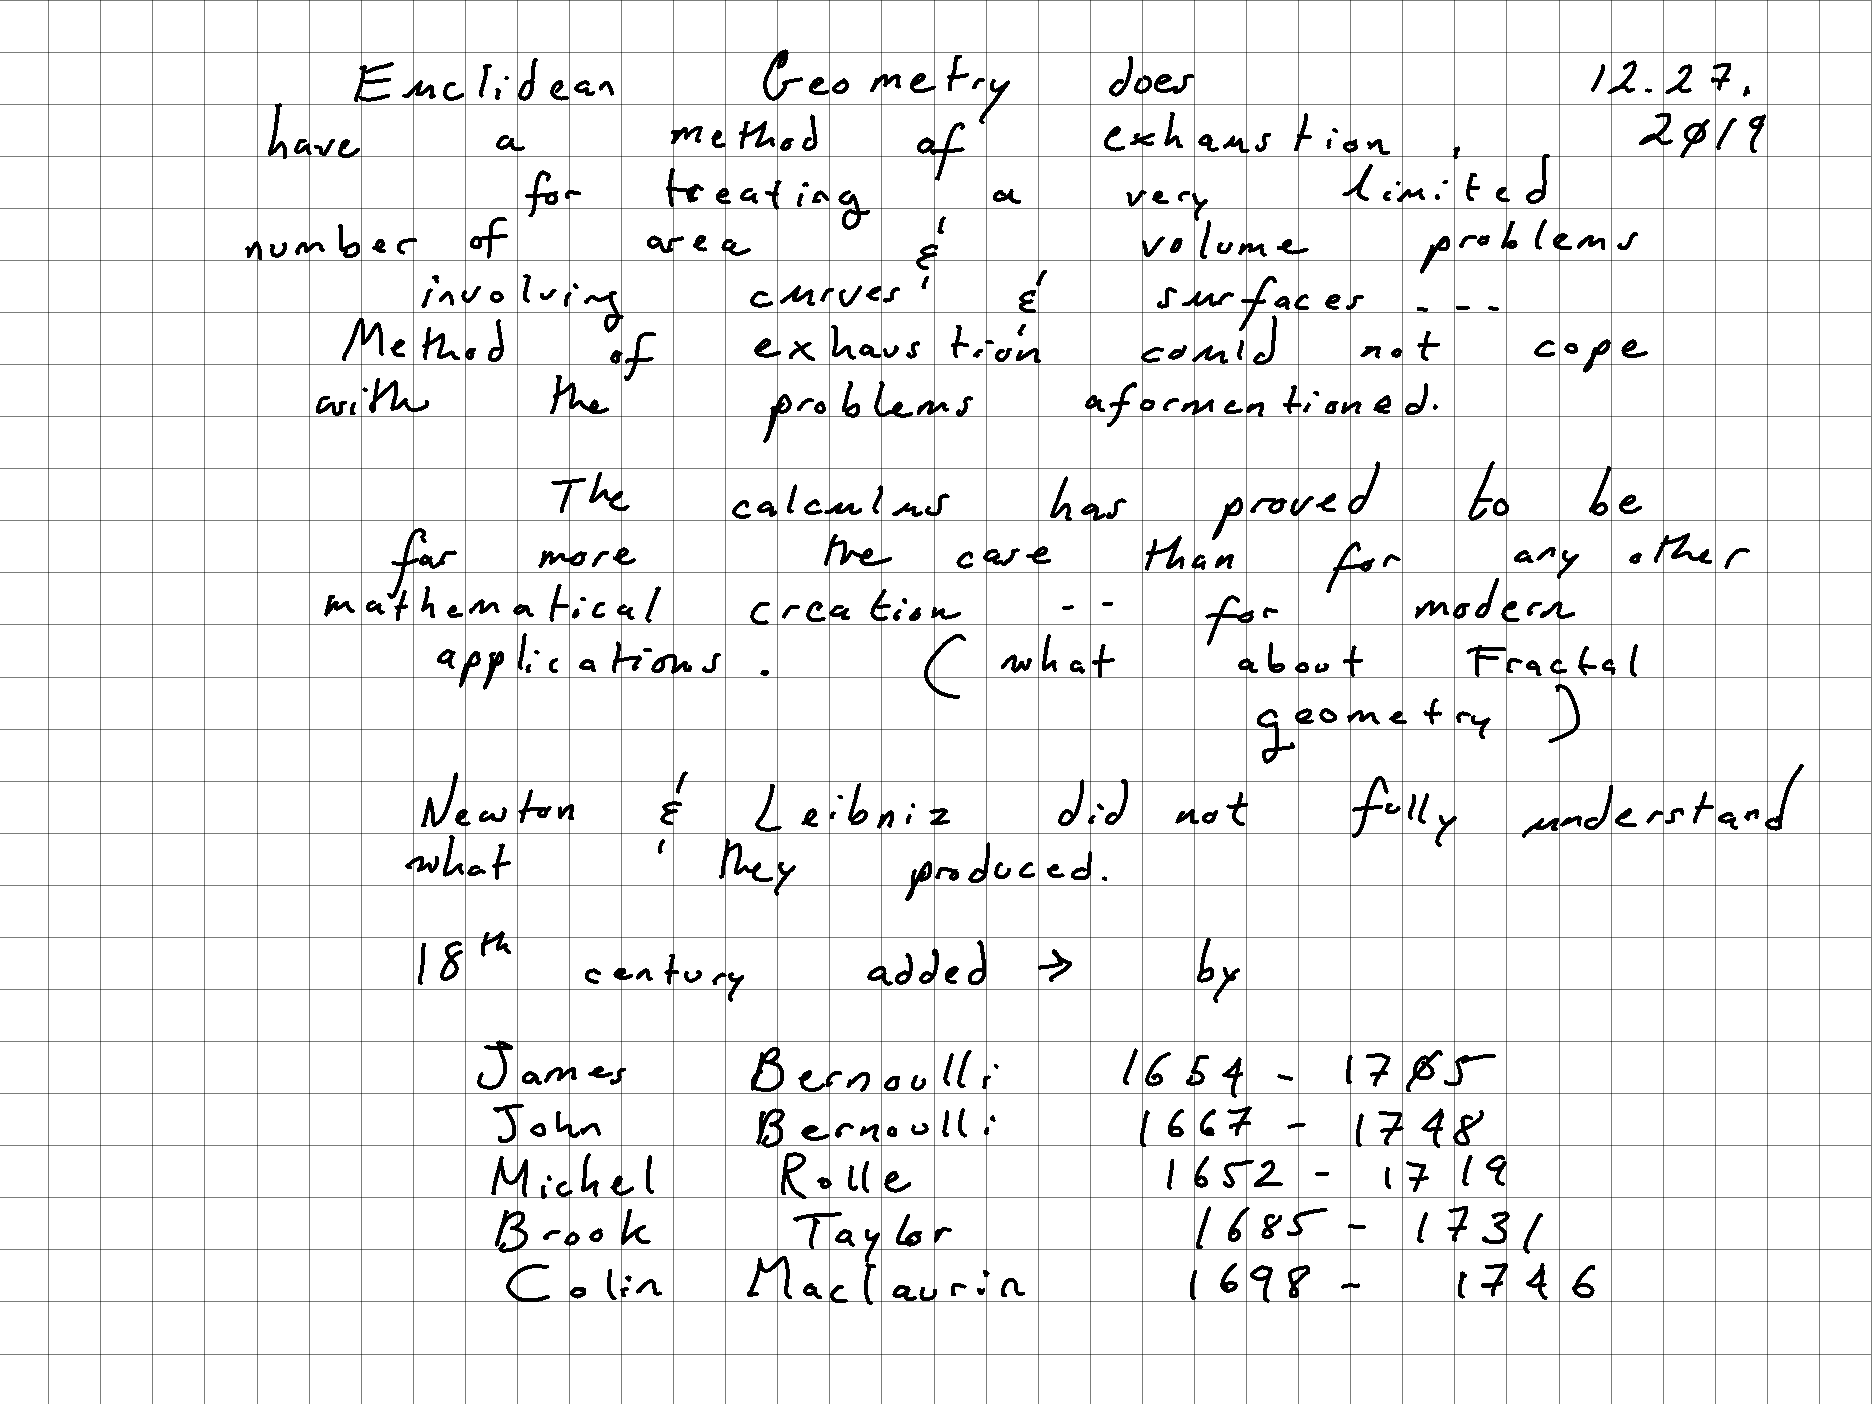 Euclidean Geometry does 12.27.
have a method of exhaustion, 2019
for treating a very limited
number of area & volume problems
involving curves & surfaces ---
Method of exhaustion could not cope
with the problems aformentioned.
The calculus has proved to be
far more the case than for any other
mathematical creation -- for modern
applications. (what about Fractal
geometry)
Newton & Leibniz did not fully understand
what they produced.
18th century added → by
James Bernoulli 1654 - 1705
John Bernoulli 1667 - 1748
Michel Rolle 1652 - 1719
Brook Taylor 1685 - 1731
Colin Maclaurin 1698 - 1746